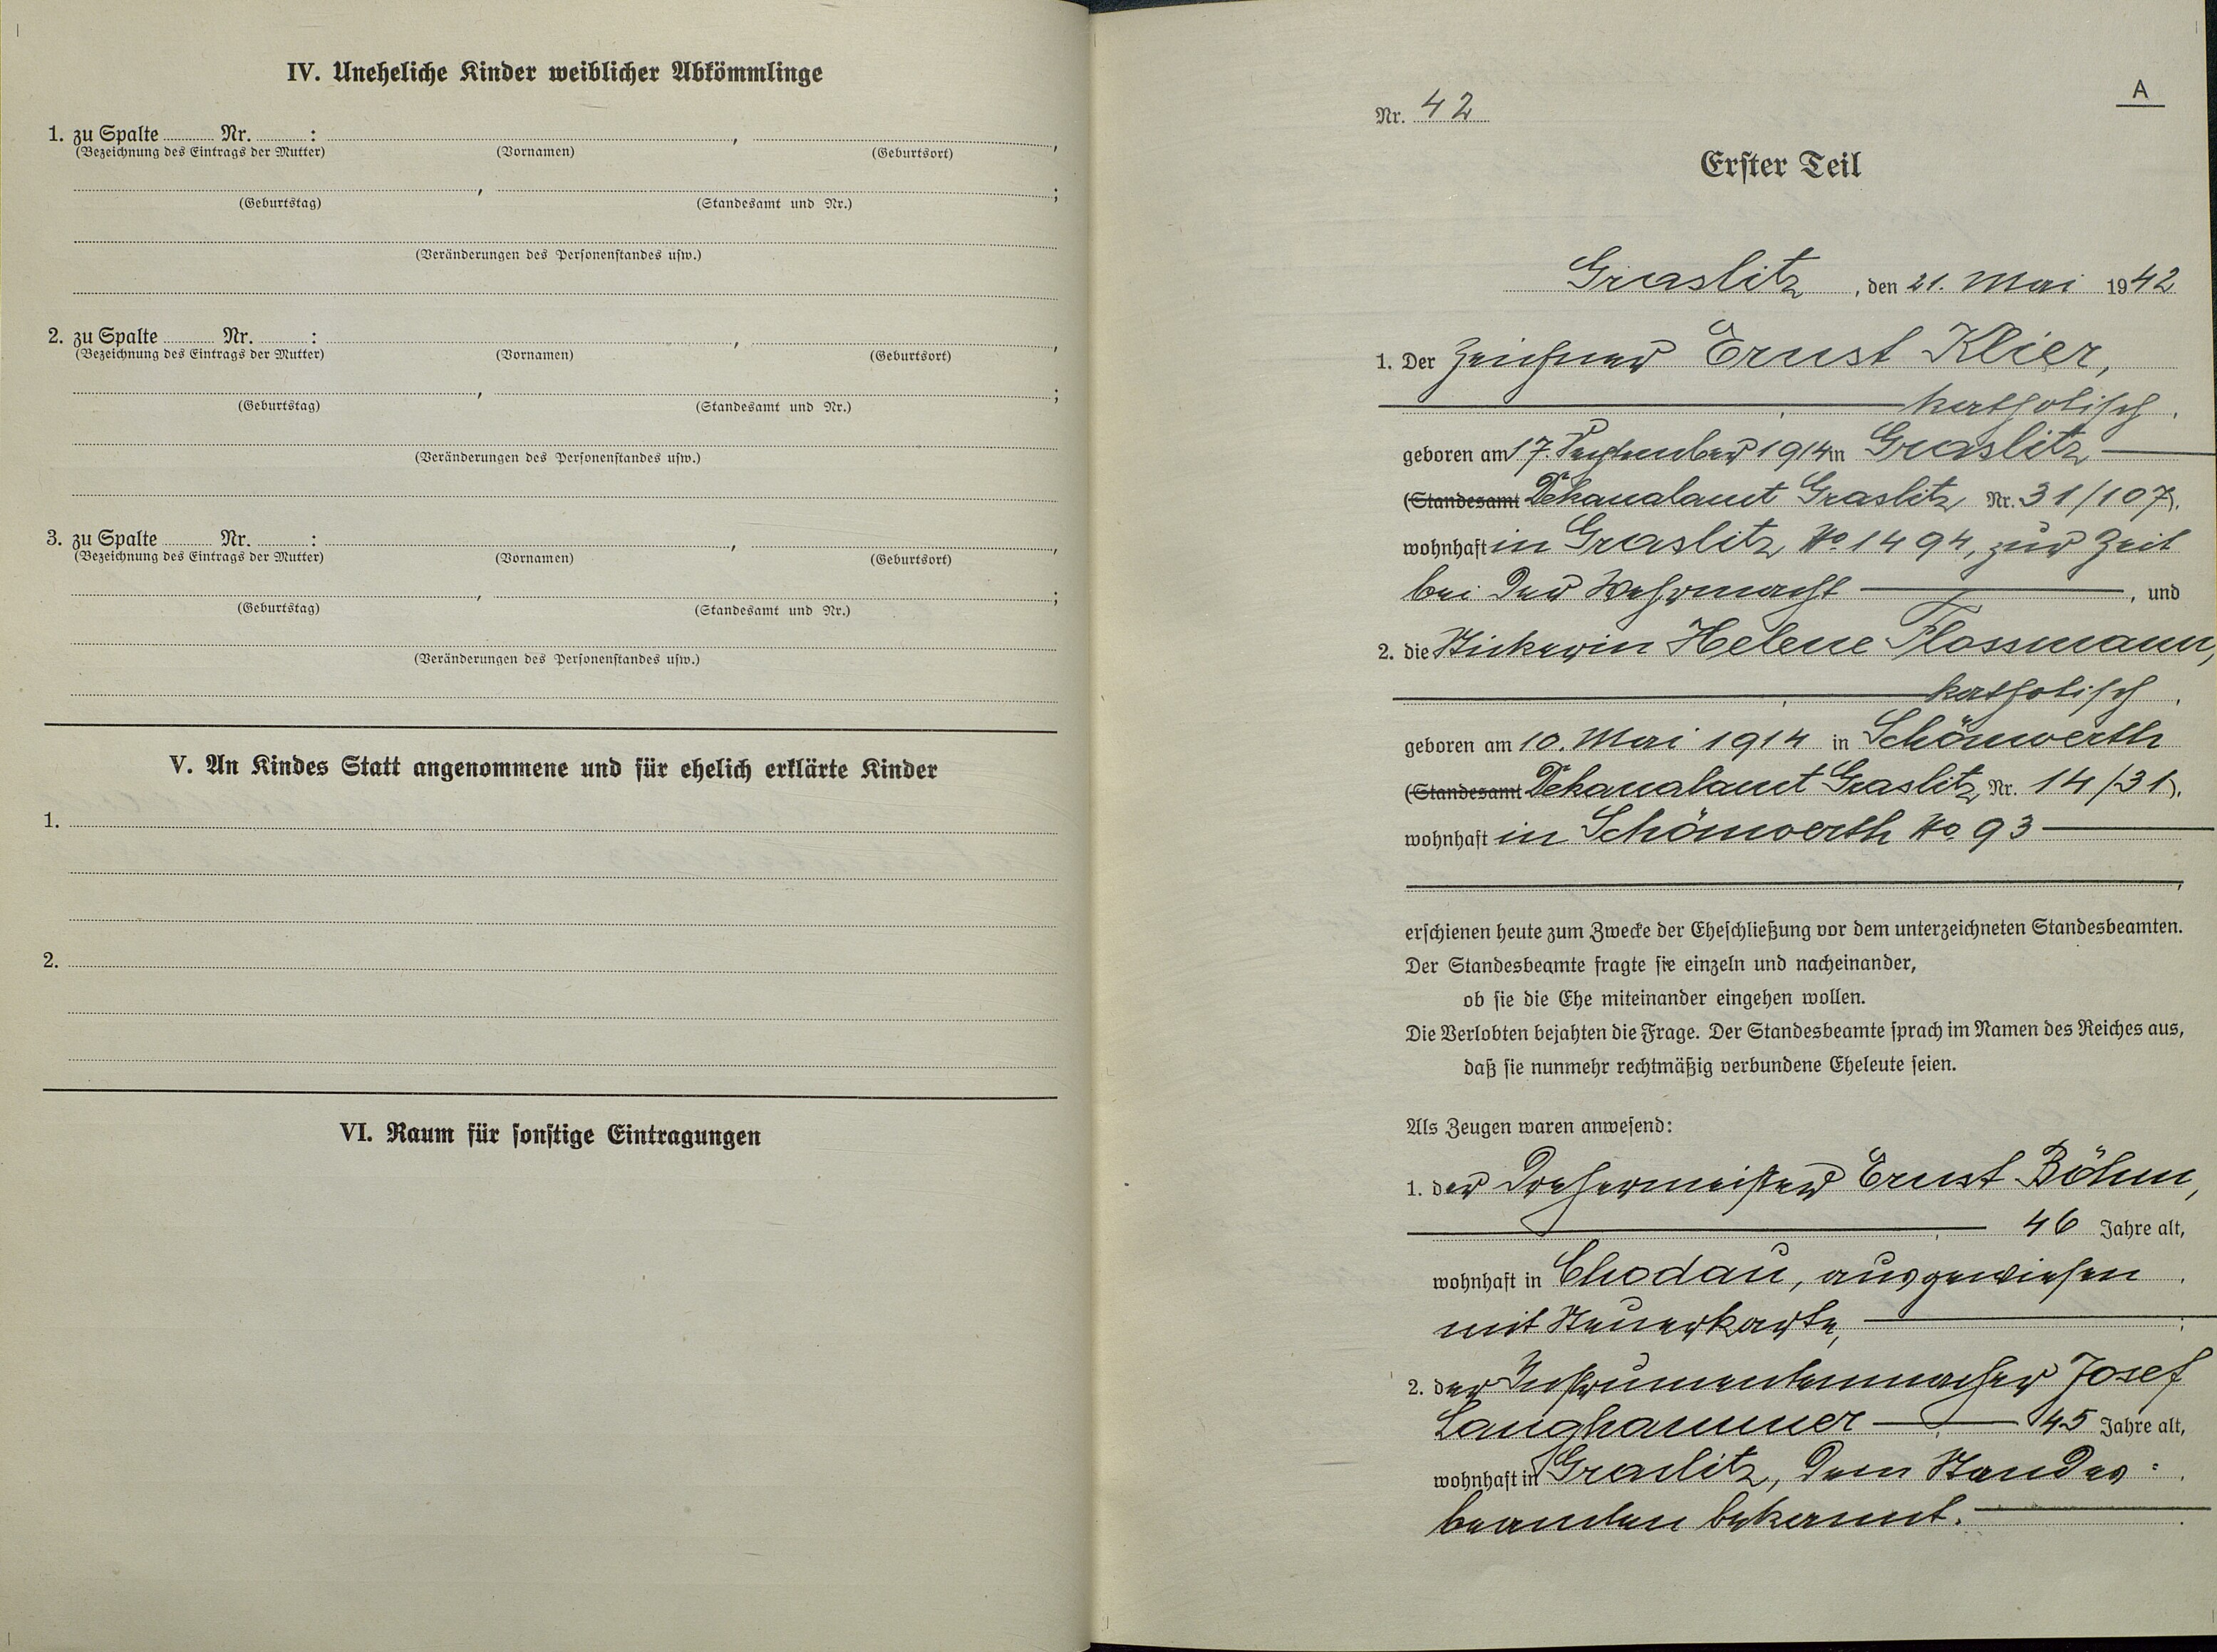 IV. Uneheliche Kinder weiblicher Abkömmlinge
1. zu Spalte Nr. : , ,
(Bezeichnung des Eintrags der Mutter) (Vornamen) (Geburtsort)
, ;
(Geburtstag) (Standesamt und Nr.)
(Veränderungen des Personenstandes usw.)
2. zu Spalte Nr. : , ,
(Bezeichnung des Eintrags der Mutter) (Vornamen) (Geburtsort)
, ;
(Geburtstag) (Standesamt und Nr.)
(Veränderungen des Personenstandes usw.)
3. zu Spalte Nr. : , ,
(Bezeichnung des Eintrags der Mutter) (Vornamen) (Geburtsort)
, ;
(Geburtstag) (Standesamt und Nr.)
(Veränderungen des Personenstandes usw.)
V. An Kindes Statt angenommene und für ehelich erklärte Kinder
1.
2.
VI. Raum für sonstige Eintragungen
A
Nr. 42
Erster Teil
Graslitz, den 21. Mai 1942
1. Der Zeichner Ernst Klier,
katholisch,
geboren am 17. September 1914 in Graslitz
(Standesamt Dekanalamt Graslitz Nr. 31/107),
wohnhaft in Graslitz No. 1494, zur Zeit
bei der Wehrmacht, und
2. die Stickerin Helene Flossmann,
katholisch,
geboren am 10. Mai 1914 in Schönwerth
(Standesamt Dekanalamt Graslitz Nr. 14/31),
wohnhaft in Schönwerth No. 93
,
erschienen heute zum Zwecke der Eheschließung vor dem unterzeichneten Standesbeamten.
Der Standesbeamte fragte sie einzeln und nacheinander,
ob sie die Ehe miteinander eingehen wollen.
Die Verlobten bejahten die Frage. Der Standesbeamte sprach im Namen des Reiches aus,
daß sie nunmehr rechtmäßig verbundene Eheleute seien.
Als Zeugen waren anwesend:
1. der Drehermeister Ernst Böhm,
46 Jahre alt,
wohnhaft in Chodau, ausgewiesen
mit Steuerkarte, ;
2. der Instrumentenmacher Josef
Langhammer 45 Jahre alt,
wohnhaft in Graslitz, dem Standes-
beamten bekannt.